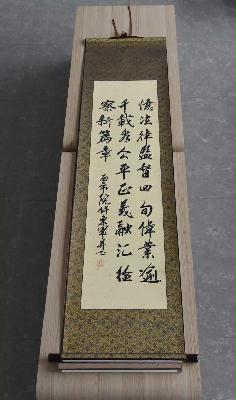 憶法律監督四旬偉業逾
千載為公平正義融汇檢
察新篇章